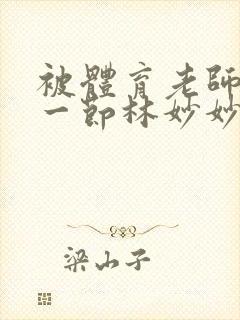 被體育老師
一節林妙妙
梁山子